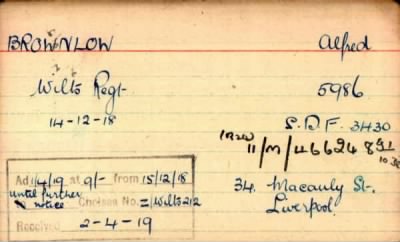 BROWNLOW Alfred
Wilts Regt 5986
14-12-18 S.D.F. 3430
11/M/466248
Ad 1/4/19 at 9/- from 15/12/18
until further notice Chelsea No. =/Wilts 212
Received 2-4-19
34. Macauly St.
Liverpool.